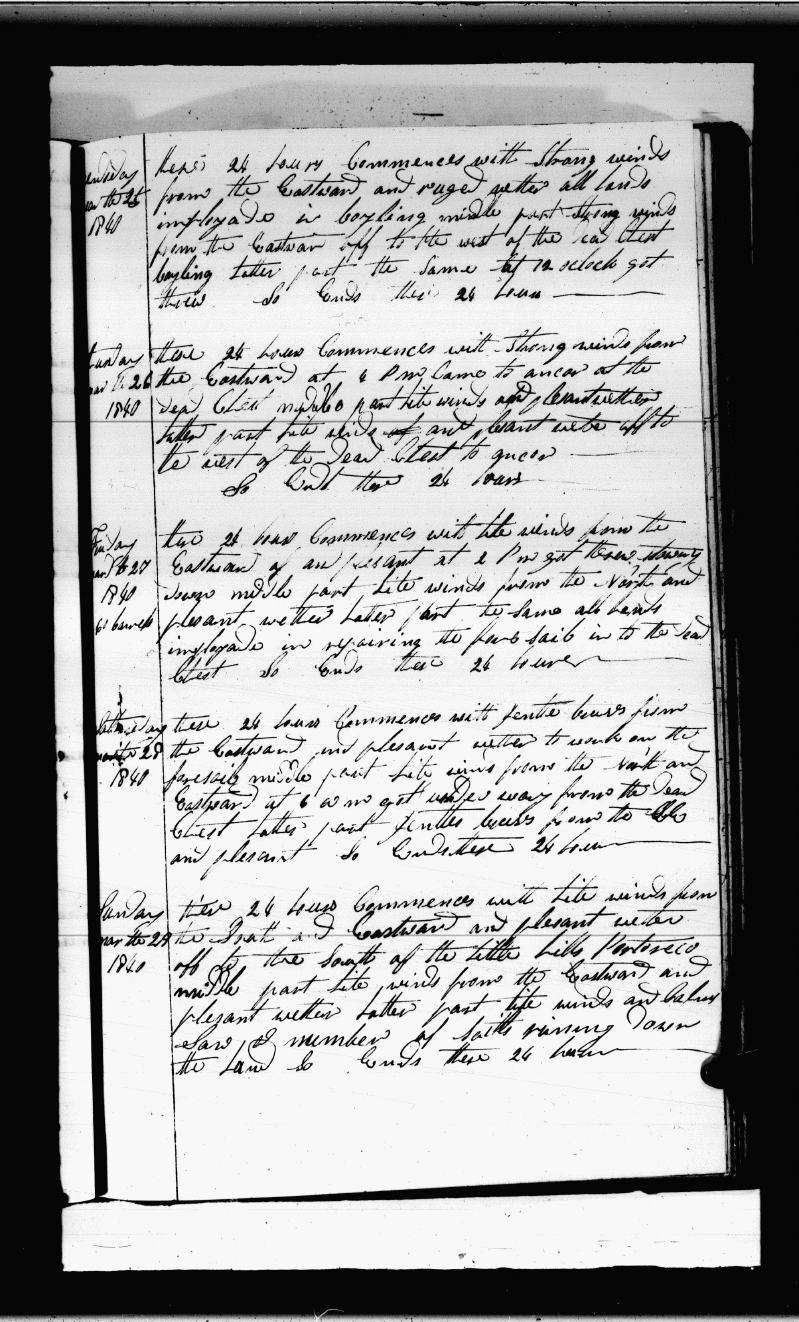 Wensday
mar the 25
1840
these 24 hours Commences with Strong winds
from the Eastward and ruged wether all hands
imployade in boyling middle part strong winds
from the Eastwar off to the west of the Dead Chest
boyling Latter part the Same at 12 oclock got
threw So Ends these 24 hours
mar the 26
1840
these 24 hours Commences with Strong winds from
the Eastward at 4 Pm Came to ancor at the
Dead Chest middle part Lite winds and plesant wether
Latter part Lite winds and plesant wether off to
the west of the Dead Chest to ancor
So Ends these 24 hours
Friday
mar the 27
1840
60 barrels
these 24 hours Commences with Lite winds from the
Eastward and plesant at 2 Pm got threw stowing
down middle part Lite winds from the North and
plesant wether Latter part the Same all hands
imployade in repairing the fore sail in to the Dead
Chest So Ends these 24 hours
Satturday
mar the 28
1840
these 24 hours Commences with Jentle breezes from
the Eastward and plesant wether to work on the
foresail middle part Lite winds from the North and
Eastward at 6 am got under way from the Dead
Chest Latter part Jentle breezes from the
and plesant So Ends these 24 hours
Sunday
mar the 29
1840
these 24 hours Commences with Lite winds from
the North and Eastward and plesant wether
off to the South of the Little hills Portoreco
middle part Lite winds from the Eastward and
plesant wether Latter part Lite winds and Calms
Saw a number of Sails runing down
the Land So Ends these 24 hours